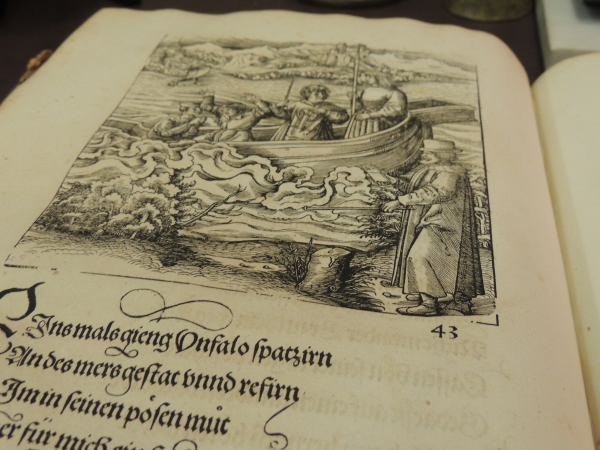 43
Einsmals gieng Unfalo spatzirn
An des mers gestat vnnd refirn
Im in seinen pösen můt
er für mich